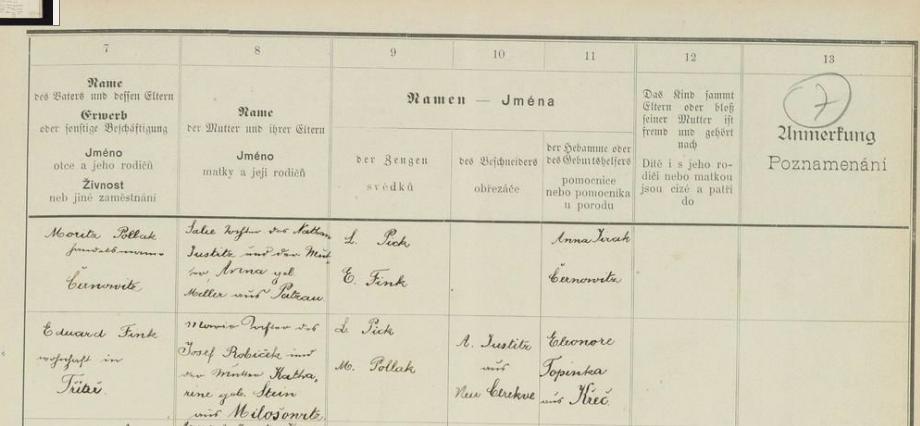 7
8
9
10
11
12
13
Name
des Vaters und dessen Eltern
Erwerb
oder sonstige Beschäftigung
Jméno
otce a jeho rodičů
Živnost
neb jiné zaměstnání
Name
der Mutter und ihrer Eltern
Jméno
matky a její rodičů
Namen — Jména
der Zeugen
svědků
des Beschneiders
obřezáče
der Hebamme oder
des Geburtshelfers
pomocnice
nebo pomocníka
u porodu
Das Kind sammt
Eltern oder bloß
seiner Mutter ist
fremd und gehört
nach
Dítě i s jeho ro-
diči nebo matkou
jsou cizé a patří
do
7
Anmerkung
Poznamenání
Moritz Pollak
Handelsmann
Černowitz
Salie Tochter des Nathan
Justitz und der Mut
ter Anna geb
Meller aus Patzau
L. Pick
E. Fink
Anna
Černowitz
Eduard Fink
wohnhaft in
Marie Tochter des
Josef Robiček und
der Mutter Katha,
rine geb. Stein
aus Milošowitz
L. Pick
M. Pollak
A. Justitz
aus
Neu Cerekve
Eleonore
Topinka
aus Křeč